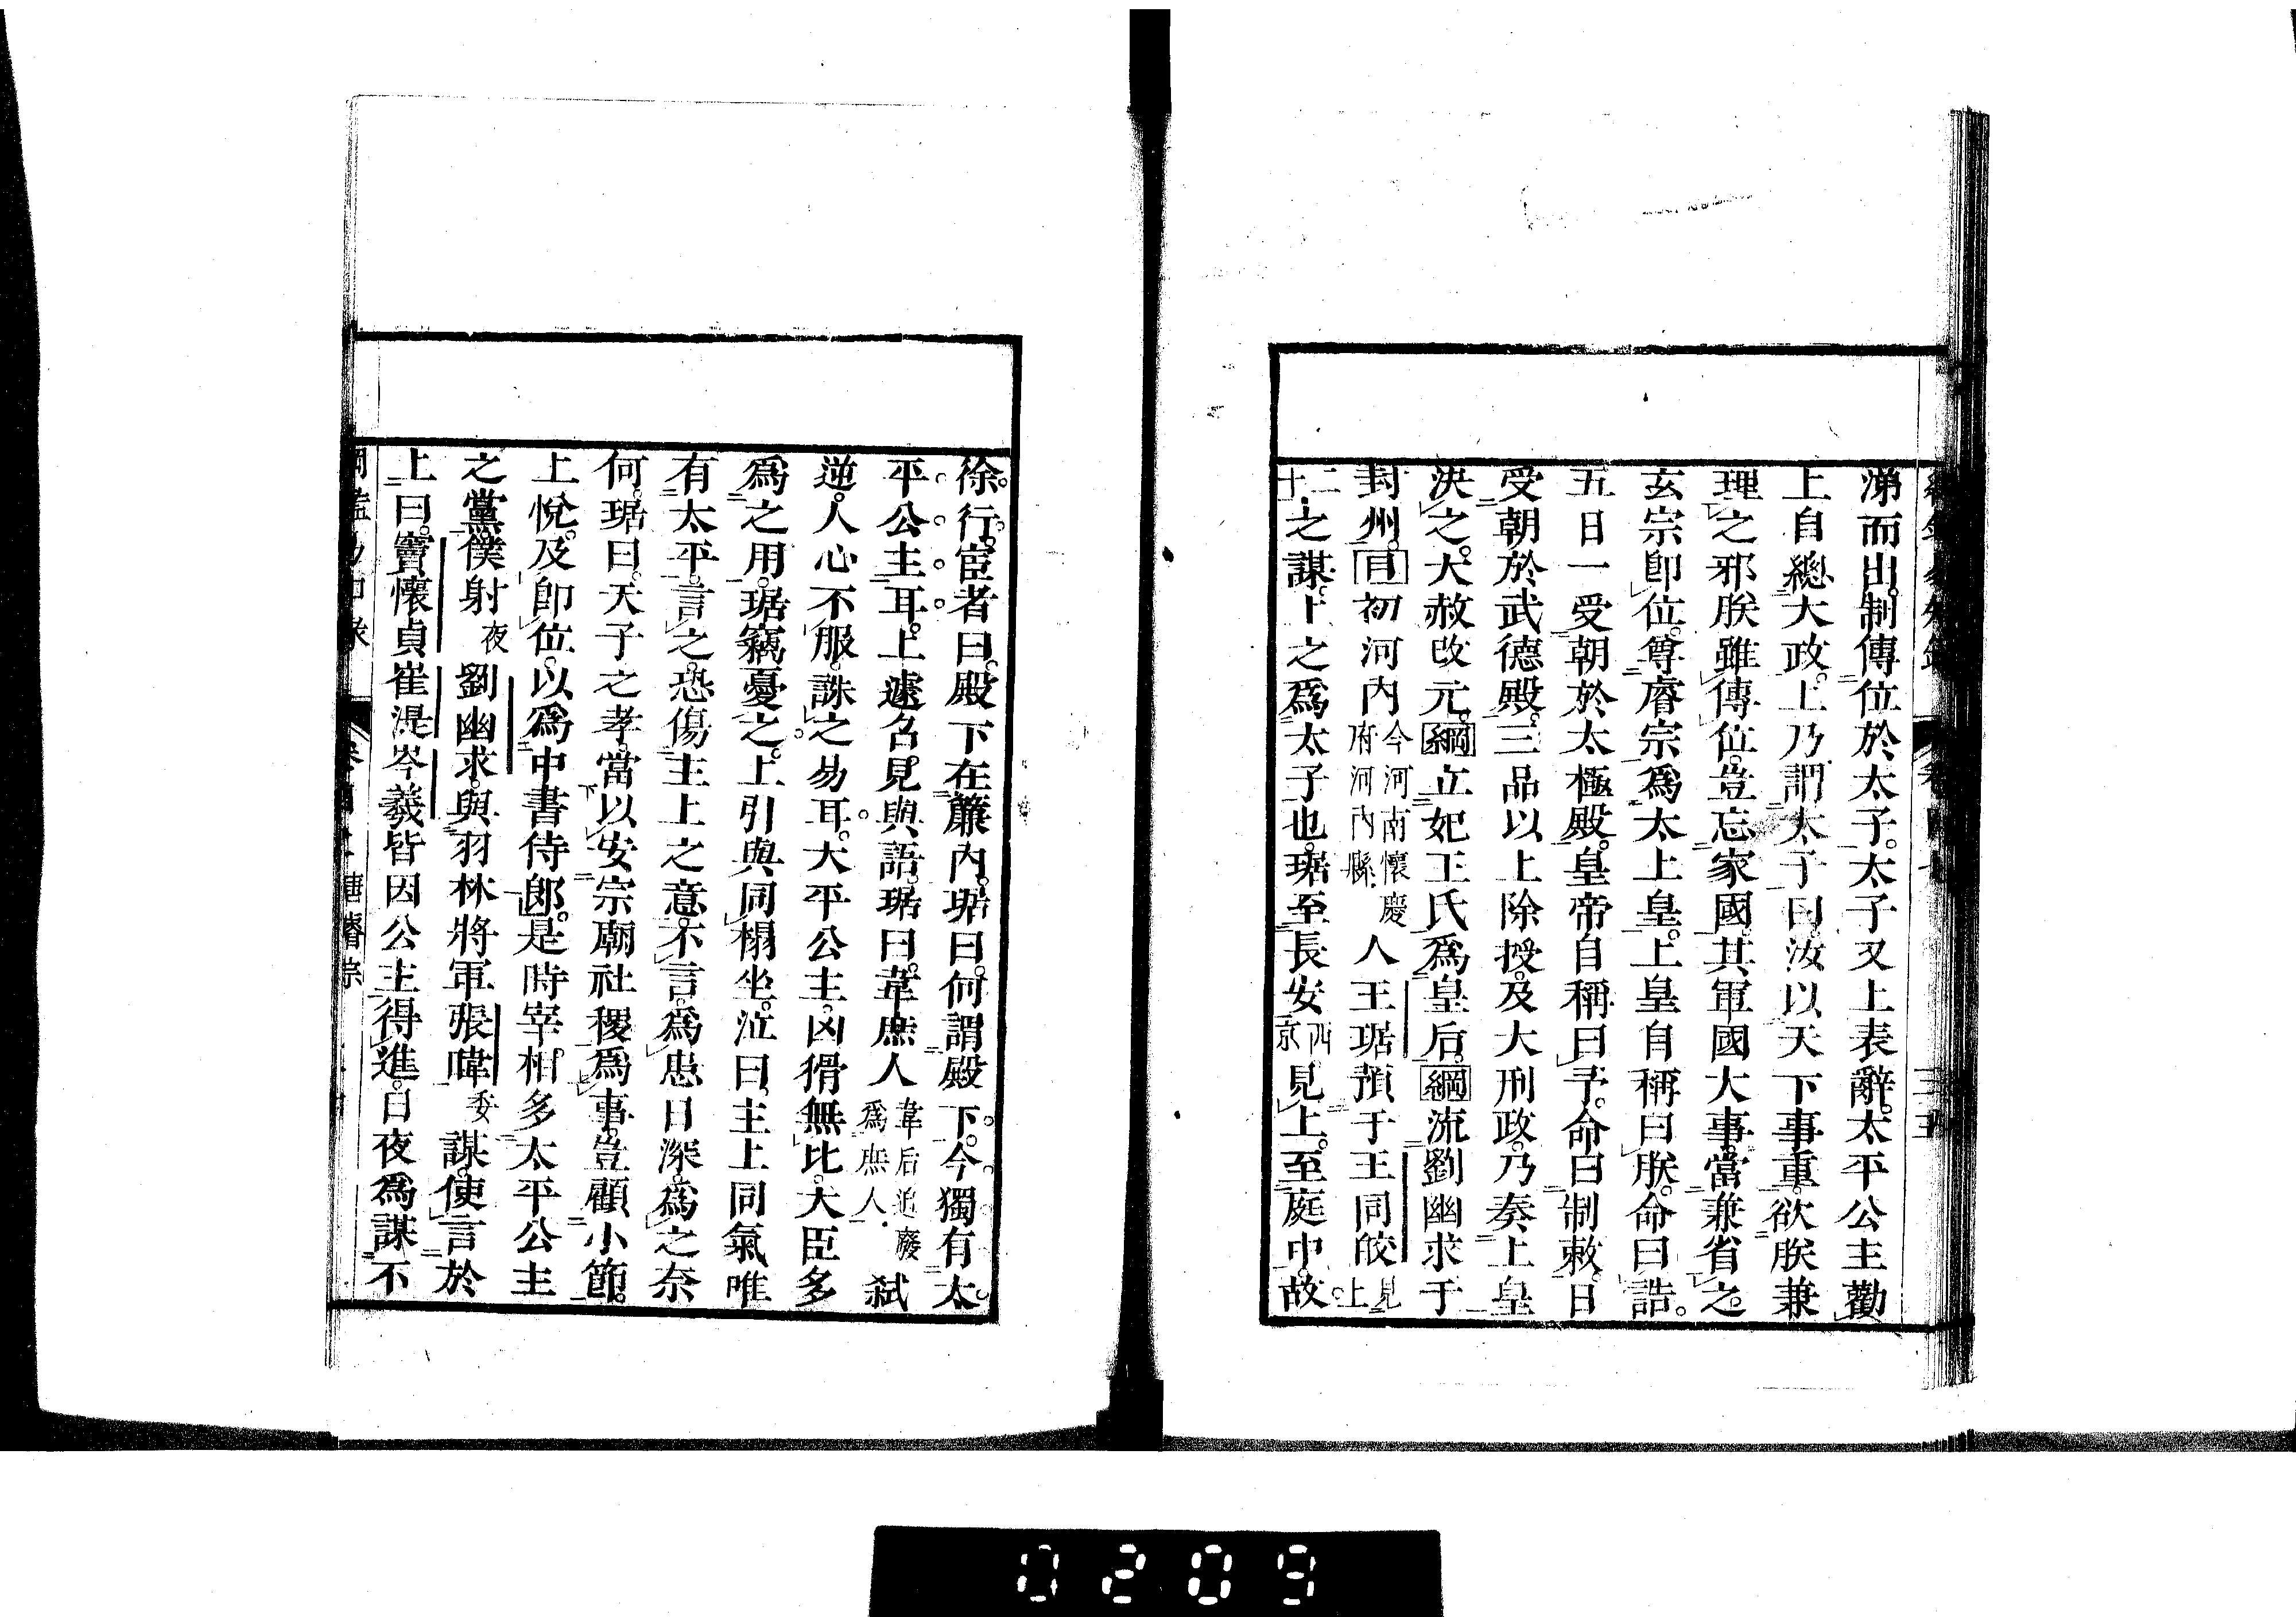 涕而出制傳位於太子太子又上表辭太平公主勸
上自總大政上乃謂太子曰汝以天下事重欲朕兼
理之邪朕雖傳位豈忘家國其軍國大事當兼省之
玄宗卽位尊睿宗爲太上皇上皇自稱曰朕命曰誥
五日一受朝於太極殿皇帝自稱曰予命曰制敕日
受朝於武德殿三品以上除授及大刑政乃奏上皇
決之大赦改元綱立妃王氏爲皇后綱流劉幽求于
封州目初河內今河南懷慶府河內縣人王琚預于王同皎見上
二十之謀上之爲太子也琚至長安西京見上至庭中故
徐行宦者曰殿下在簾內琚曰何謂殿下今獨有太
平公主耳上遽召見與語琚曰韋庶人韋后追廢爲庶人弑
逆人心不服誅之易耳太平公主凶猾無比大臣多
爲之用琚竊憂之上引與同榻坐泣曰主上同氣唯
有太平言之恐傷主上之意不言爲患日深爲之奈
何琚曰天子之孝當以安宗廟社稷爲事豈顧小節
上悅及卽位以爲中書侍郎是時宰相多太平公主
之黨僕射夜劉幽求與羽林將軍張暐委謀使言於
上曰竇懷貞崔湜岑羲皆因公主得進日夜爲謀不
唐睿宗
0209